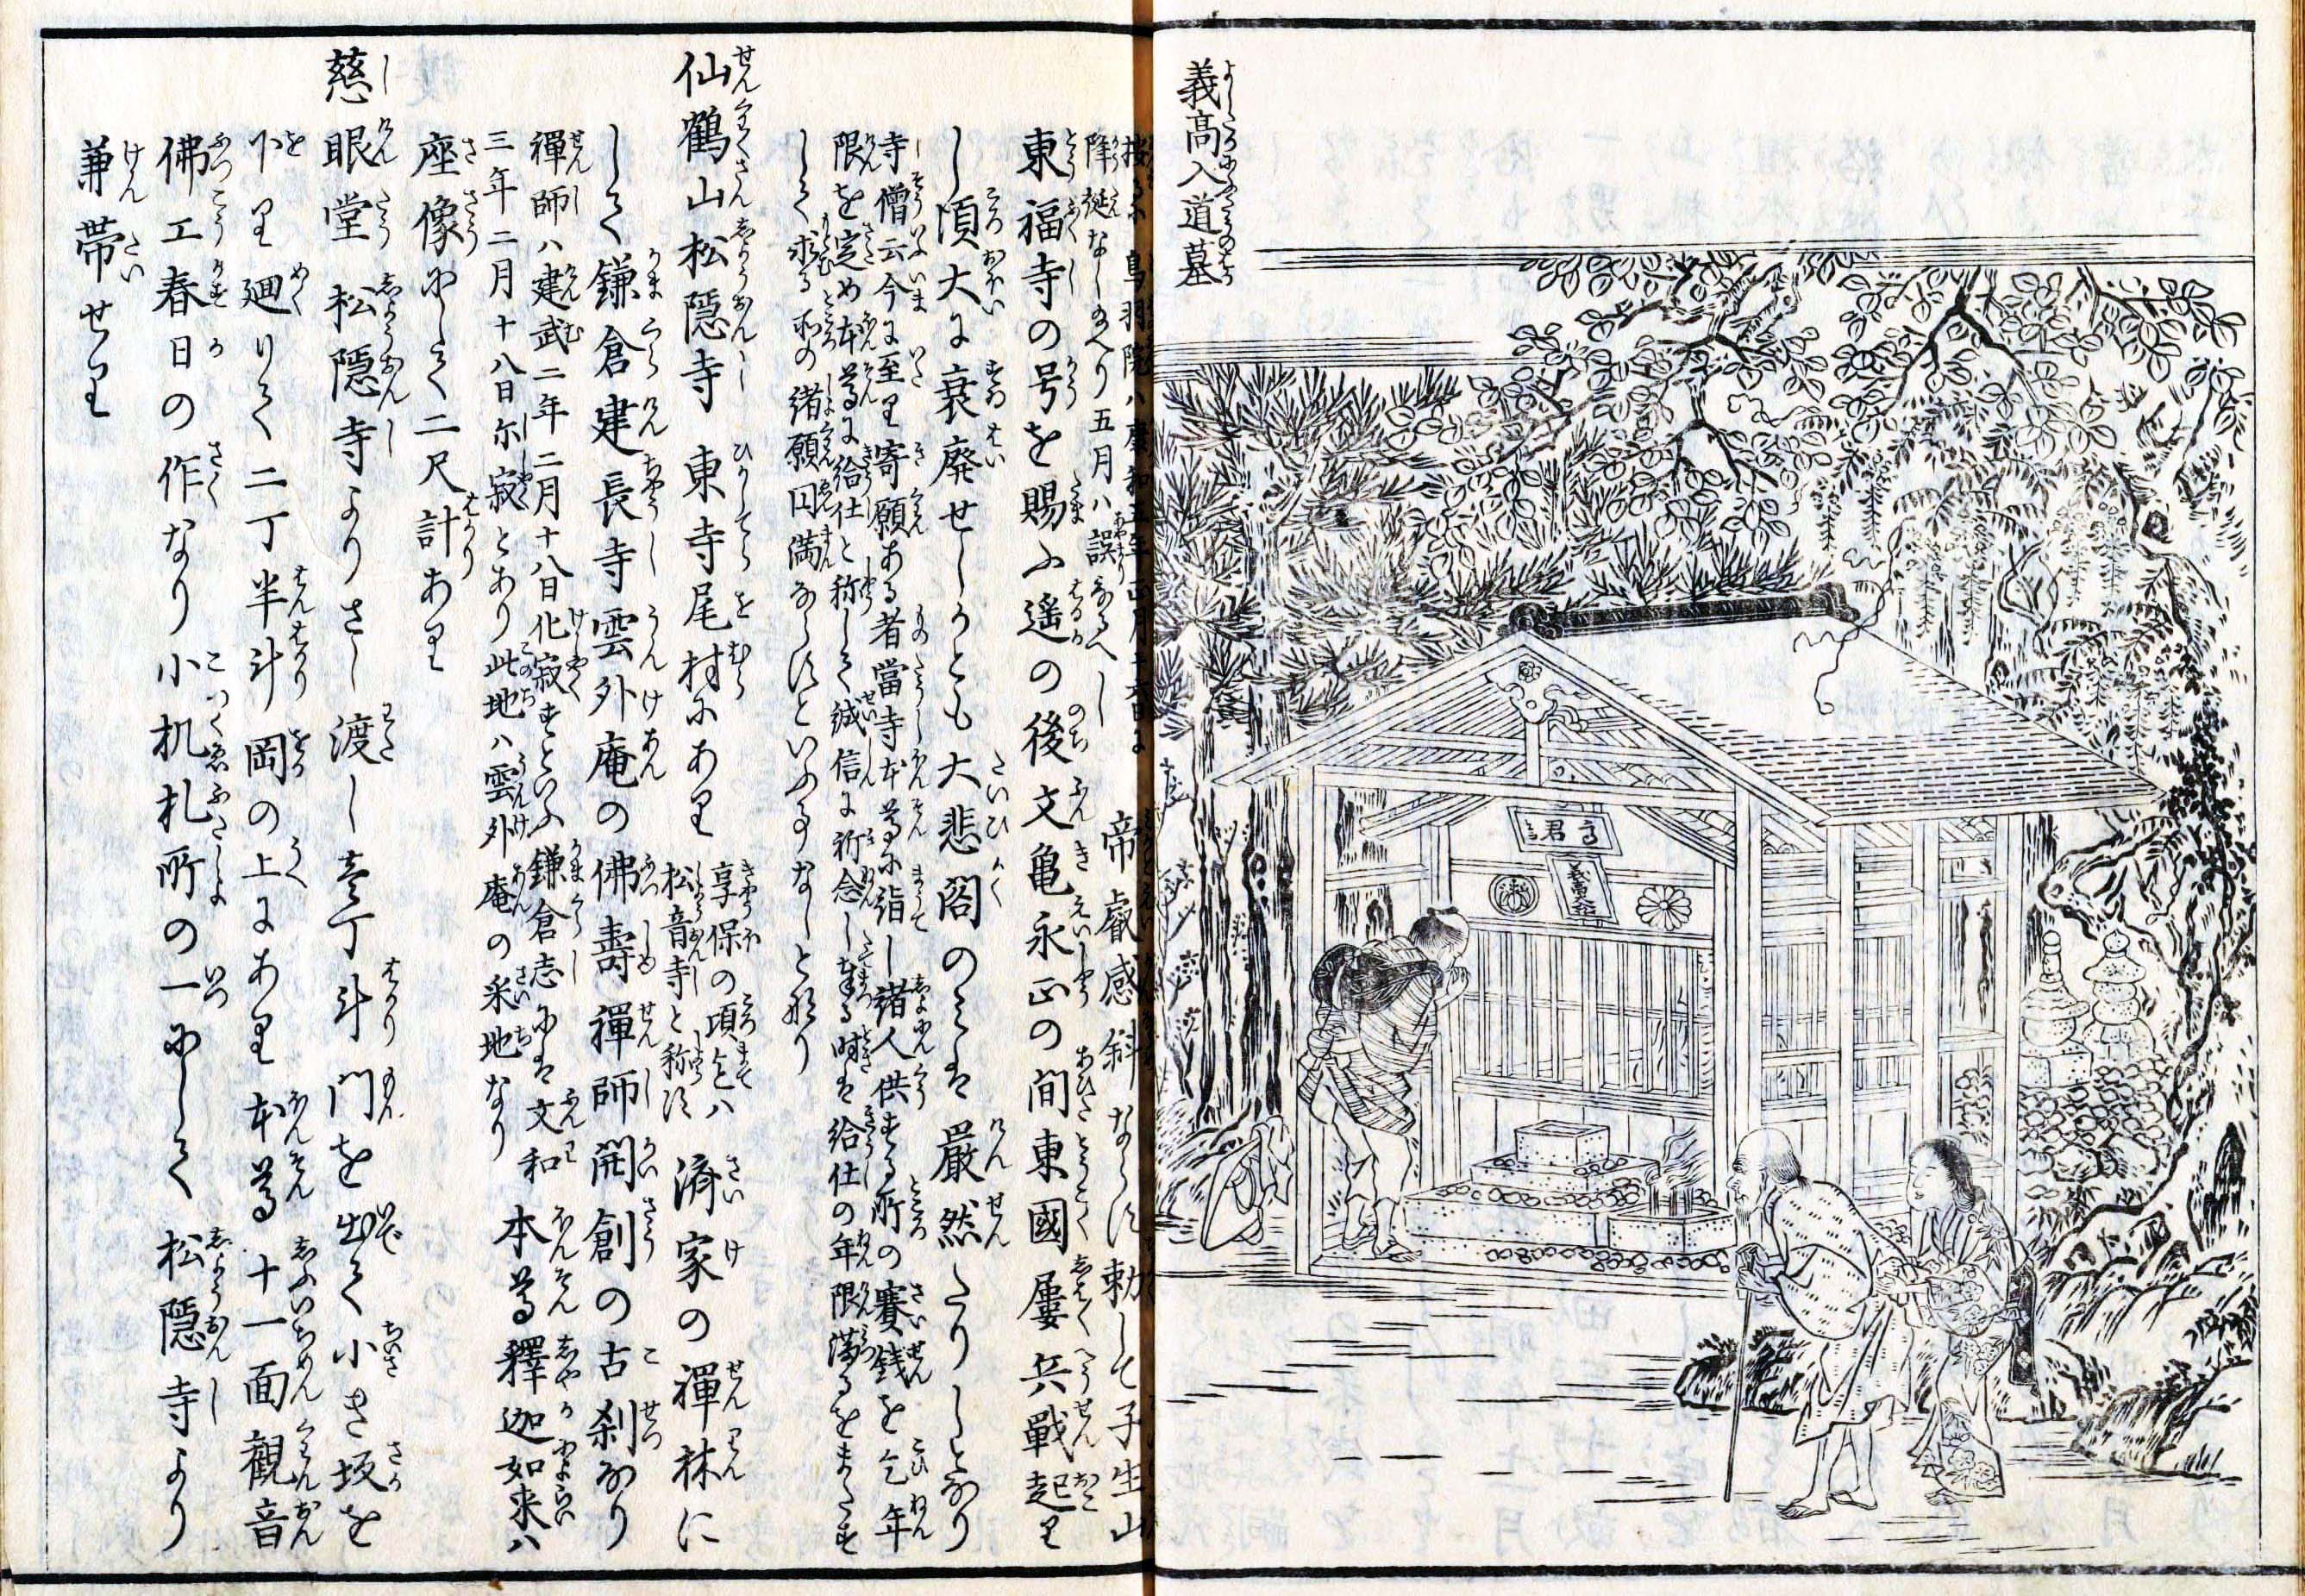 義高入道墓
高君
義高
按るに鳥羽院ハ康和五年正月十六日に
降誕なし給へり五月ハ誤なるへし
帝叡感斜ならす勅して子生山
東福寺の号を賜ふ遥の後文亀永正の間東國屢兵戰起り
し頃大に衰廃せしかとも大悲閣のミは厳然たりしとなり
寺僧云今に至り寄願ある者當寺本尊に詣し諸人供する所の賽銭を乞年
限を定め本尊に給仕と称して誠信に祈念し奉る時は給仕の年限満るをまたす
して求る所の諸願円満ならすといふ事なしと云り
仙鶴山松隠寺
東寺尾村にあり
享保の頃迄ハ
松音寺と称す
済家の禪林に
して鎌倉建長寺雲外庵の佛壽禪師開創の古刹なり
禪師ハ建武二年二月十八日化寂すといふ鎌倉志には文和
三年二月十八日示寂とあり此地ハ雲外庵の采地なり
本尊釋迦如来ハ
座像にして二尺計あり
慈眼堂
松隠寺よりさし渡し壱丁斗門を出て小き坂を
下り廻りて二丁半斗岡の上にあり本尊十一面觀音
佛工春日の作なり小机札所の一にして松隠寺より
兼帯せり